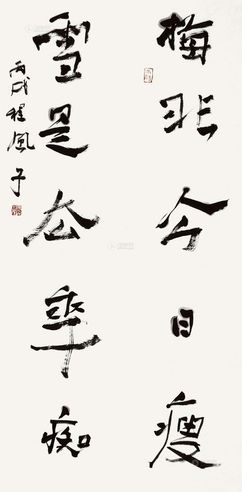 梅非今日瘦
雪是去年痴
丙戌程風子